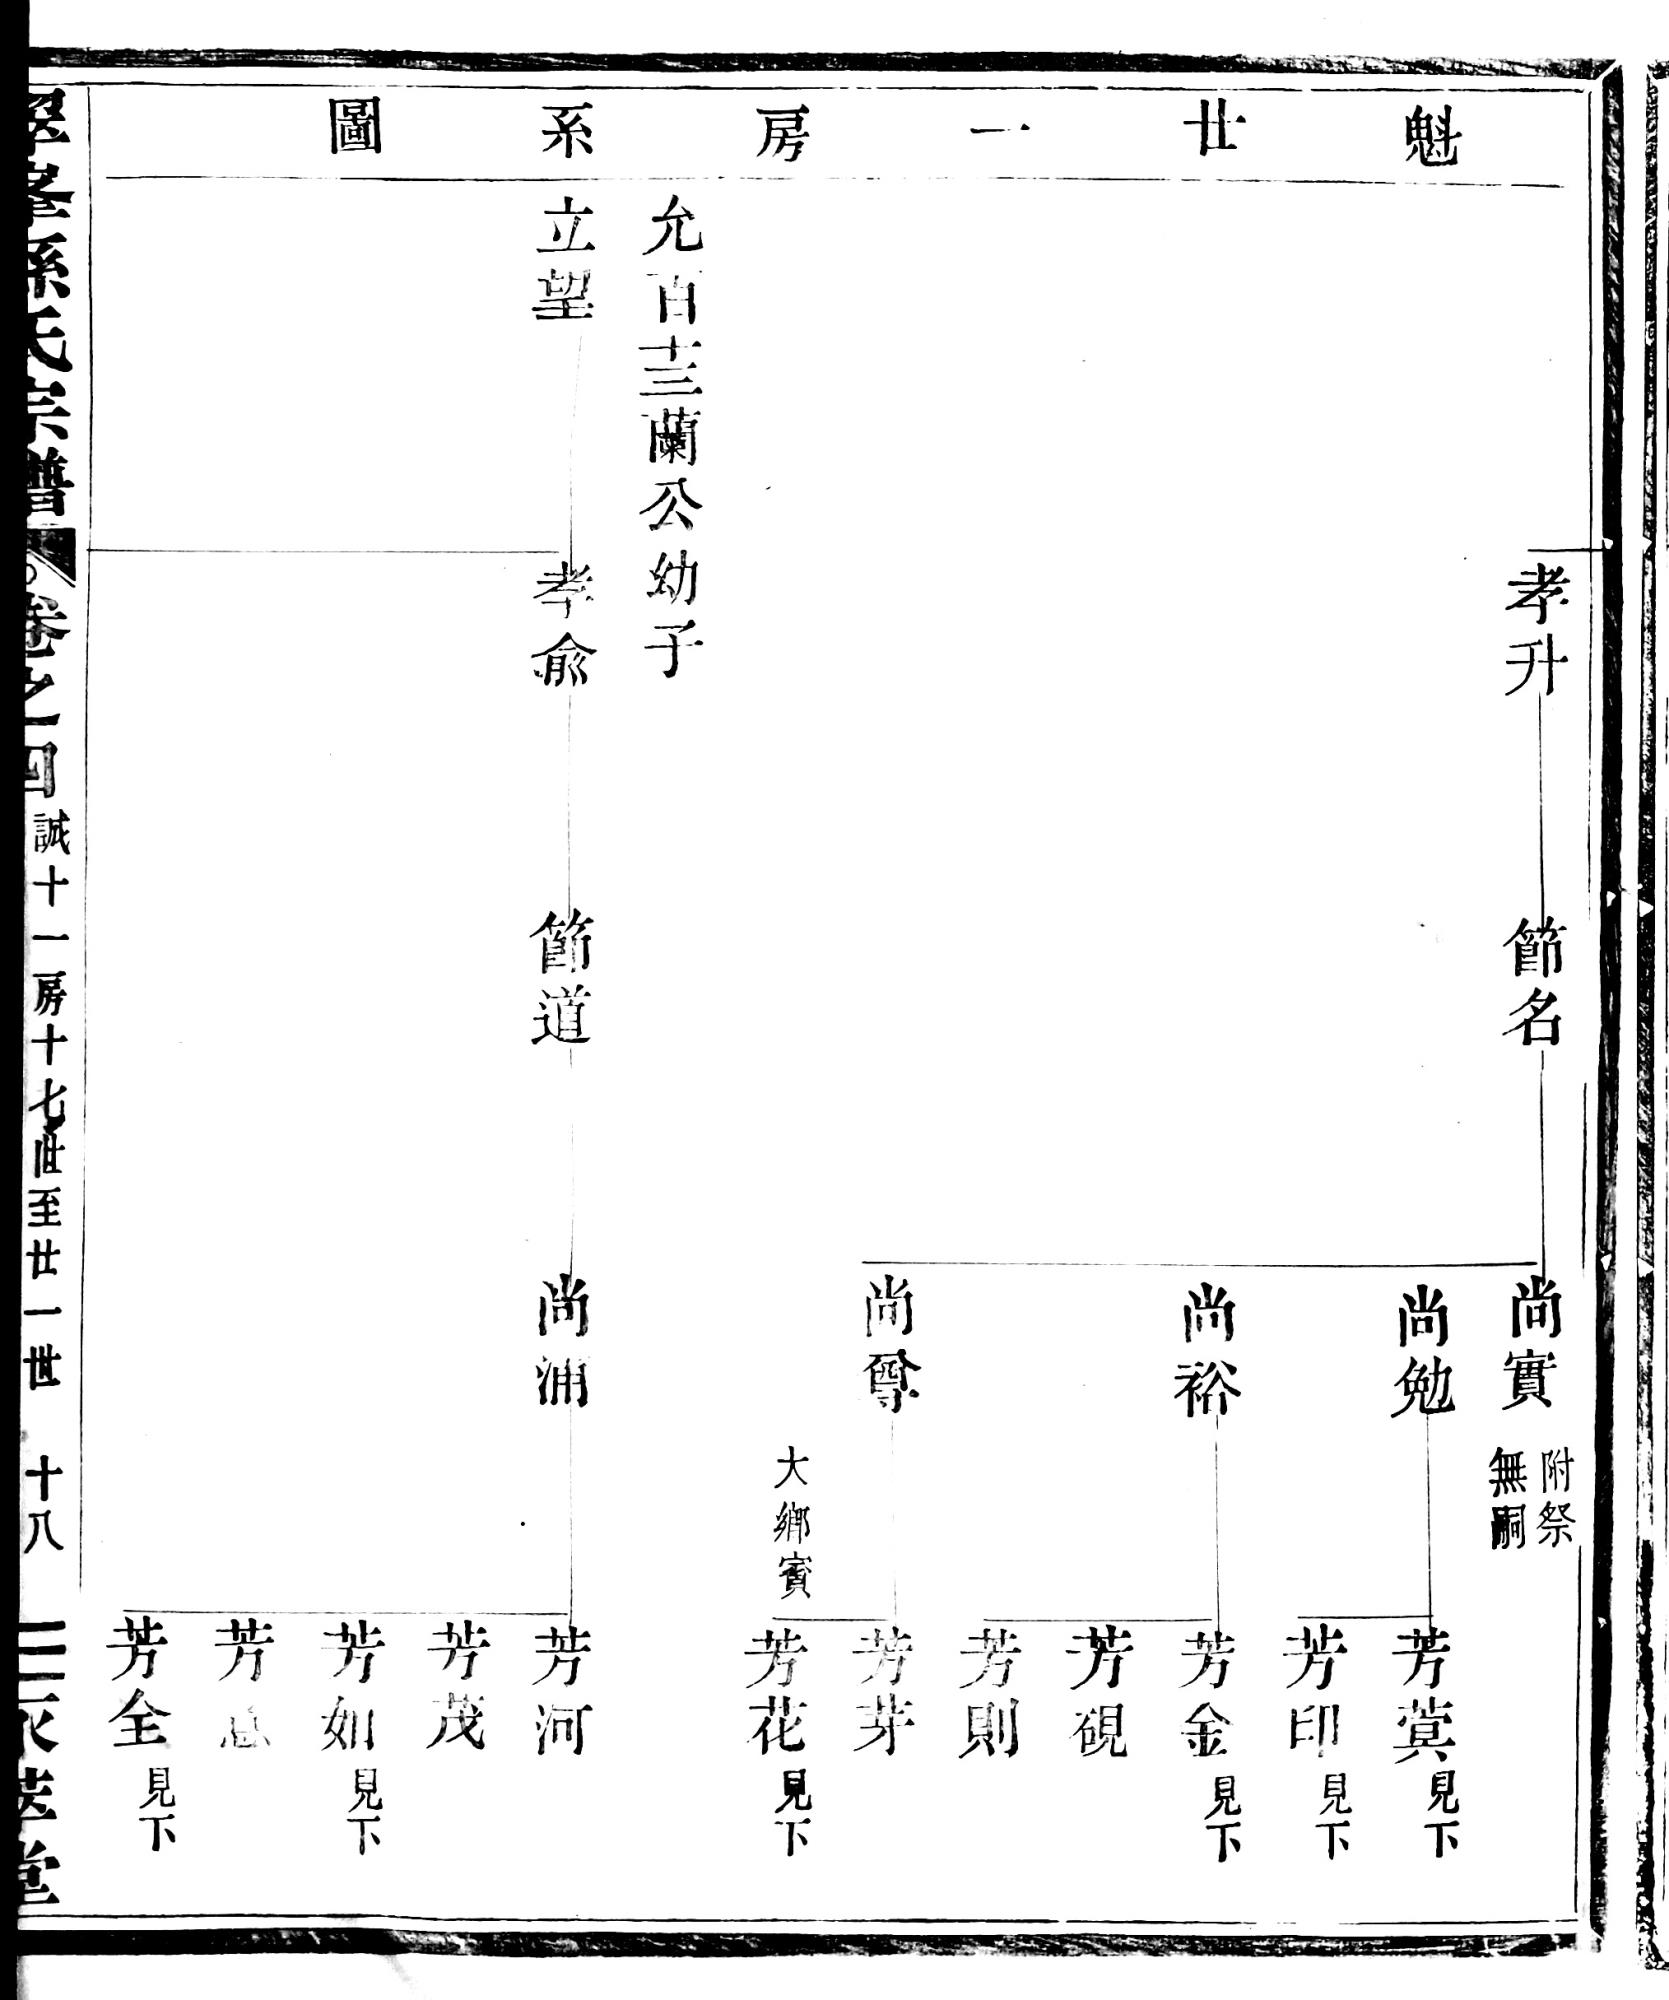 魁廿一房系圖
孝升
節名
尚實
附祭
無嗣
尚勉
尚裕
尚尊
大鄉賓
芳蓂
見下
芳印
見下
芳金
見下
芳硯
芳則
芳芽
芳花
見下
允百十三蘭公幼子
立望
孝俞
節道
尚浦
芳河
芳茂
芳如
見下
芳
芳全
見下
峯孫氏宗譜
卷之四
誠十一房十七世至廿一世
十八
堂